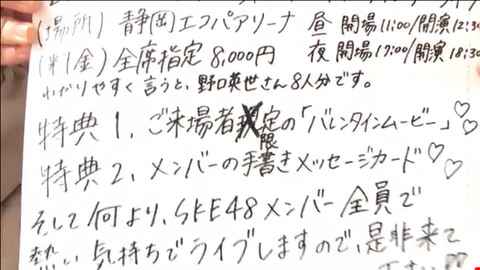 (場所) 静岡エコパアリーナ 昼 開場11:00/開演12:30
(料金) 全席指定 8,000円 夜 開場17:00/開演18:30
わかりやすく言うと、野口英世さん8人分です。
特典1、ご来場者限定の「バレンタインムービー」♡♡
特典2、メンバーの手書きメッセージカード♡♡
そして何より、SKE48メンバー全員で
熱い気持ちでライブしますので、是非来て